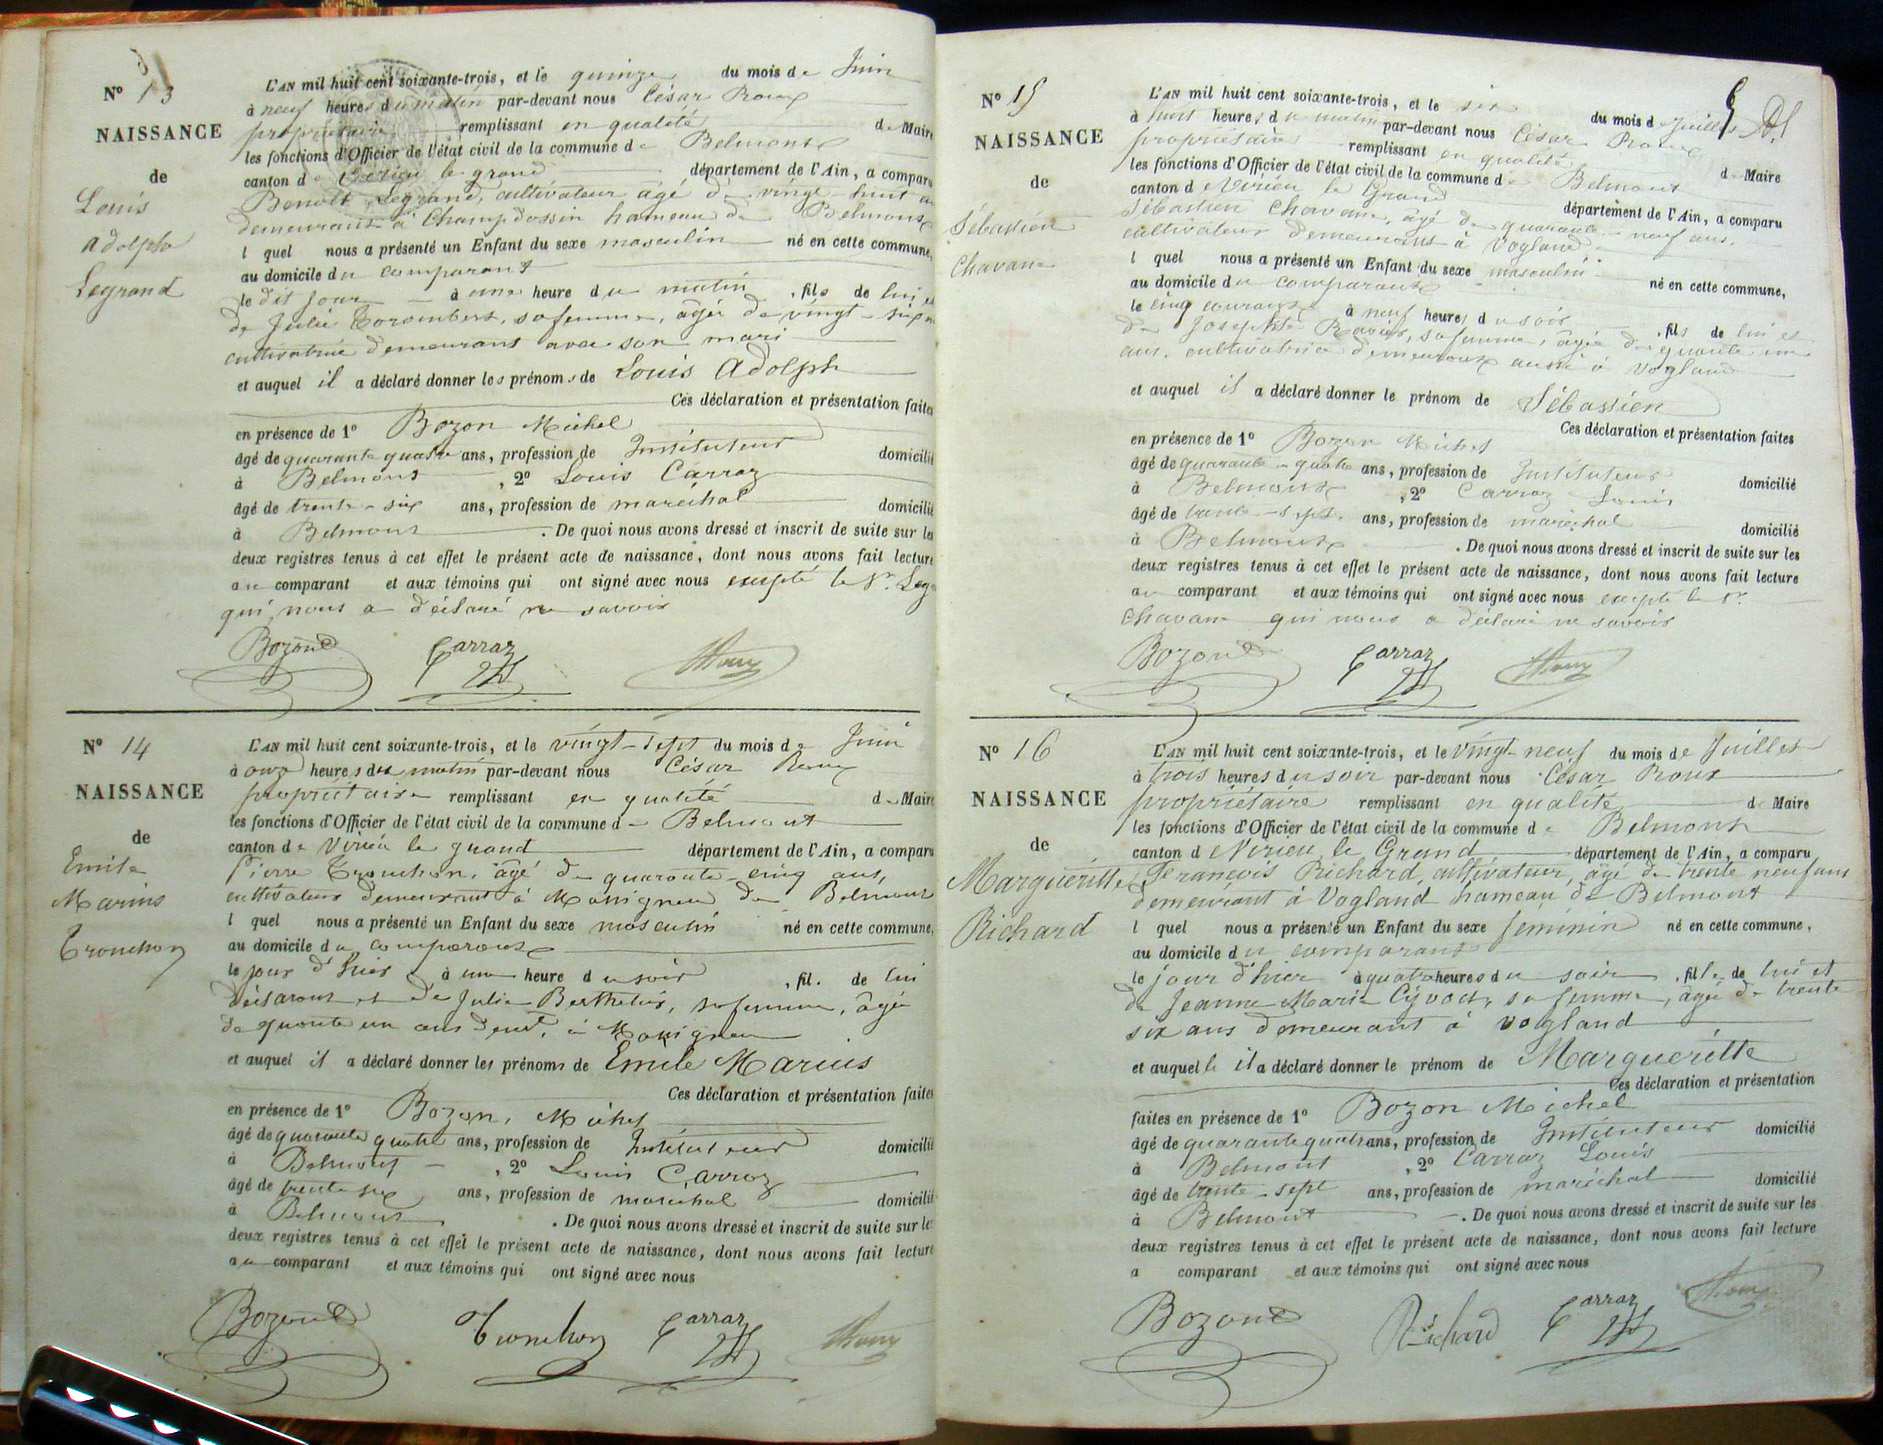 N° 13
NAISSANCE
de
Louis
Adolph
Legrand
L'AN mil huit cent soixante-trois, et le quinze du mois de Juin
à neuf heures du matin par-devant nous César Roux
propriétaire remplissant en qualité de Maire
les fonctions d'Officier de l'état civil de la commune de Belmont
canton de Virieu le grand département de l'Ain, a comparu
Benoit Legrand, cultivateur âgé de vingt-huit
demeurant à Champdossin hameau de Belmont
lequel nous a présenté un Enfant du sexe masculin né en cette commune,
au domicile du comparant
le dit jour à une heure du matin, fils de lui et
de Julie Torombert, sa femme, âgée de vingt-six
cultivatrice demeurant avec son mari
et auquel il a déclaré donner les prénoms de Louis Adolph
Ces déclaration et présentation faites
en présence de 1° Bozon Michel
âgé de quarante quatre ans, profession de Instituteur domicilié
à Belmont, 2° Louis Carraz
âgé de trente-six ans, profession de maréchal domicilié
à Belmont. De quoi nous avons dressé et inscrit de suite sur les
deux registres tenus à cet effet le présent acte de naissance, dont nous avons fait lecture
au comparant et aux témoins qui ont signé avec nous excepté le Sr. Leg
qui nous a déclaré ne savoir
Bozon Carraz Roux
N° 14
NAISSANCE
de
Emile
Marius
Tronchon
L'AN mil huit cent soixante-trois, et le vingt-sept du mois de Juin
à onze heures du matin par-devant nous César Roux
propriétaire remplissant en qualité de Maire
les fonctions d'Officier de l'état civil de la commune de Belmont
canton de Virieu le grand département de l'Ain, a comparu
Pierre Tronchon, âgé de quarante-cinq ans,
cultivateur demeurant à Massignieu de Belmont
lequel nous a présenté un Enfant du sexe masculin né en cette commune,
au domicile du comparant
le jour d'hier à une heure du soir, fil. de lui
déclarant et de Julie Berthelier, sa femme, âgée
de quarante un ans demt. à Massignieu
et auquel il a déclaré donner les prénoms de Emile Marius
Ces déclaration et présentation faites
en présence de 1° Bozon, Michel
âgé de quarante quatre ans, profession de Instituteur domicilié
à Belmont, 2° Louis Carraz
âgé de trente six ans, profession de maréchal domicilié
à Belmont. De quoi nous avons dressé et inscrit de suite sur les
deux registres tenus à cet effet le présent acte de naissance, dont nous avons fait lecture
au comparant et aux témoins qui ont signé avec nous
Bozon Tronchon Carraz Roux
N° 15
NAISSANCE
de
Sébastien
Chavan
L'AN mil huit cent soixante-trois, et le six du mois de Juillet
à huit heures du matin par-devant nous César Roux
propriétaire remplissant en qualité de Maire
les fonctions d'Officier de l'état civil de la commune de Belmont
canton de Virieu le Grand département de l'Ain, a comparu
Sébastien Chavan, âgé de quarante-neuf ans,
cultivateur demeurant à Vogland
lequel nous a présenté un Enfant du sexe masculin né en cette commune,
au domicile du comparant
le cinq courant à neuf heures du soir, fils de lui et
de Josephte Ravier, sa femme, âgée de quarante un
ans, cultivatrice demeurant aussi à Vogland
et auquel il a déclaré donner le prénom de Sébastien
Ces déclaration et présentation faites
en présence de 1° Bozon Michel
âgé de quarante-quatre ans, profession de Instituteur domicilié
à Belmont, 2° Carraz Louis
âgé de trente-sept. ans, profession de maréchal domicilié
à Belmont. De quoi nous avons dressé et inscrit de suite sur les
deux registres tenus à cet effet le présent acte de naissance, dont nous avons fait lecture
au comparant et aux témoins qui ont signé avec nous excepté le Sr.
Chavan qui nous a déclaré ne savoir
Bozon Carraz Roux
N° 16
NAISSANCE
de
Margueritte
Richard
L'AN mil huit cent soixante-trois, et le Vingt-neuf du mois de Juillet
à trois heures du soir par-devant nous César Roux
propriétaire remplissant en qualité de Maire
les fonctions d'Officier de l'état civil de la commune de Belmont
canton de Virieu le Grand département de l'Ain, a comparu
François Richard, cultivateur, âgé de trente neuf ans
demeurant à Vogland hameau de Belmont
lequel nous a présenté un Enfant du sexe féminin né en cette commune,
au domicile du comparant
le jour d'hier à quatre heures du soir, fille de lui et
de Jeanne Marie Cyvoct, sa femme, âgée de trente
six ans demeurant à Vogland
et auquel le il a déclaré donner le prénom de Margueritte
Ces déclaration et présentation
faites en présence de 1° Bozon Michel
âgé de quarante quatre ans, profession de Instituteur domicilié
à Belmont, 2° Carraz Louis
âgé de trente-sept ans, profession de maréchal domicilié
à Belmont. De quoi nous avons dressé et inscrit de suite sur les
deux registres tenus à cet effet le présent acte de naissance, dont nous avons fait lecture
a comparant et aux témoins qui ont signé avec nous
Bozon Richard Carraz Roux